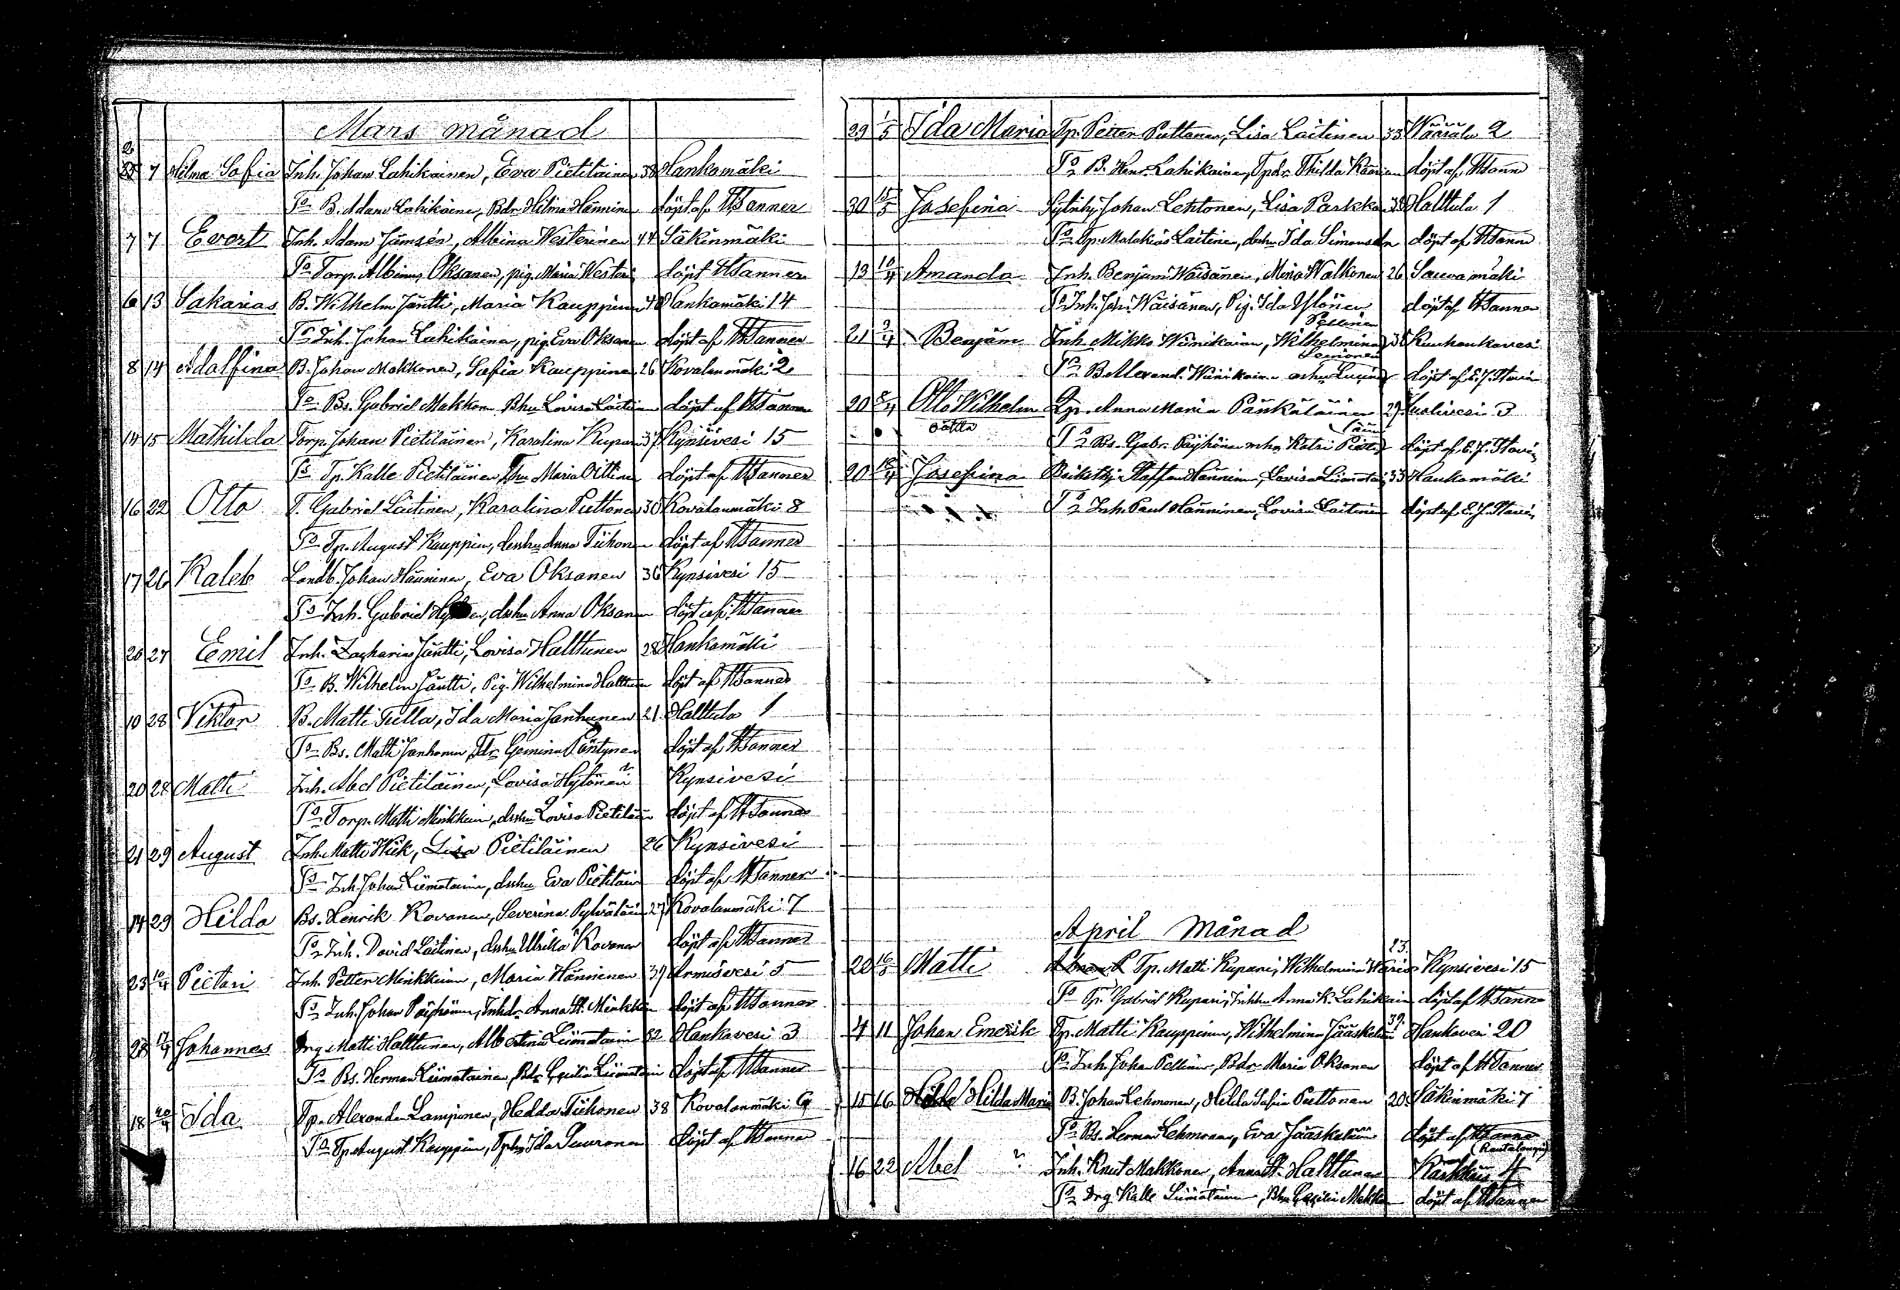 Mars månad
2
28 7 Hilma Sofia Inh. Johan Lahikainen, Eva Pietiläinen 38 Hankamäki
To B. Adam Lahikaine, Bdr. Hilma Hänninen döpt af HTanner
7 7 Evert Inh. Adam Jämsén, Albina Westerinen 44 Säkinmäki
To Torp. Albinus Oksanen, pig. Maria Westeri döpt HTanner
6 13 Sakarias B. Wilhelm Jäntti, Maria Kauppinen 40 Hankamäki 14
To Inh. Johan Lahikaine, pig. Eva Oksanen döpt af HTanner
8 14 Adolfina B. Johan Makkonen, Sofia Kauppinen 26 Kovalanmäki 2
To Bs. Gabriel Makkone Bhu Lovisa Laitine döpt af HTanner
14 15 Mathilda Torp. Johan Pietiläinen, Karolina Kupari 37 Kynsivesi 15
To Tp. Kalle Pietiläinen, Maria Oittinen döpt af HTanner
16 22 Otto T. Gabriel Laitinen, Karolina Puttonen 30 Kovalanmäki 8
To Tp. August Kauppin, dsshu Anna Tiihonen döpt af HTanner
17 26 Kaleb Landb. Johan Hänninen, Eva Oksanen 36 Kynsivesi 15
To Inh. Gabriel dsshu Anna Oksanen döpt af HTanner
26 27 Emil Inh. Zacharias Jäntti, Lovisa Halttunen 28 Hankamäki
To B. Wilhelm Jäntti, Pig. Wilhelmina Halttun döpt af HTanner
10 28 Viktor B. Matti Tulla, Ida Maria Janhunen 21 Halttula 1
To Bs. Matti Janhonen, Gemina Pöntynen döpt af HTanner
20 28 Matti Inh. Abel Pietiläinen, Lovisa Hytönen Kynsivesi
To Torp. Matti Minkkin, dsshu Lovisa Pietiläin döpt af HTanner
21 29 August Inh. Matti Hiek, Lisa Pietiläinen 26 Kynsivesi
To Inh. Johan Liimatain, dsshu Eva Pietiläin döpt af HTanner
14 29 Hilda Bs. Henrik Kovanen, Severina Pylväläin 27 Kovalanmäki 7
To Inh. David Laitinen, dsshu Ulrika Kovanen döpt af HTanner
23 10/4 Pietari Inh. Petter Minkkinen, Maria Hänninen 39 Armisvesi 5
To Inh. Johan Päyhönen, Inhdr. Anna St. Minkkin döpt af HTanner
28 17/4 Johannes Drg Matti Halttunen, Albertina Liimatain 32 Hankavesi 3
To Bs. Herman Liimatainen, Bdr Cecilia Liimatain döpt af HTanner
18 20/4 Ida Tp. Alexander Lampinen, Hedda Tiihonen 38 Kovalanmäki 9
To Tp. August Kauppin, Ida Puuronen döpt af HTanner
29 1/5 Ida Maria Tp. Petter Puttonen, Lisa Laitinen 33 Wäärälä 2
To B. Henr. Lahikaine, Tpdr. Thilda Kääriän döpt af HTanne
30 15/5 Josefina Sytnhy Johan Lehtonen, Lisa Parkko 38 Halttula 1
To Tp. Malakias Laitine, dsshu Ida Simonsdn döpt af HTanne
13 10/4 Amanda Inh. Benjam Wäisänen, Mina Walkonen 26 Sauvamäki
To Inh. Joh. Wäisänen, Pig. Ida Ylönen döpt af HTanner
21 2/4 Benjam Inh. Mikko Wänikainen, Wilhelmina Pellinen 38 Kuuhankavesi
To B. Alexand. Wänikaine döpt af E. J. Stavén
20 8/4 Otto Wilhelm oäkta Qp. Anna Maria Pänkäläinen 29 Suolivesi 3
To Bs. Gabr. Päyhönen Katri Pieti döpt af E. J. Stavén
20 Josefina Staffan Hänninen, Lovisa Liimatai 33 Hankamäki
To Inh. Paul Hänninen, Lovisa Laitinen döpt af E. J. Stavén
April Månad
20 16/5 Matti Tp. Matti Kupari, Wilhelmina Waris 23. Kynsivesi 15
To Tp. Gabriel Kupari, Inhhu Anna K. Lahikain döpt af HTanne
4 11 Johan Emerik Tp. Matti Kauppinen, Wilhelmina Jääskeläin 39. Hankavesi 20
To Inh. Johan Pellinen, Bdr. Maria Oksanen döpt af HTanner
15 16 Hilda Maria B. Johan Lehmonen, Hilda Sofia Puttonen 20. Säkinmäki 7
To Bs. Herman Lehmonen, Eva Jääskeläin döpt af HTanne
16 22 Abel ? Inh. Knut Makkonen, Anna St. Halttunen (Rautalampi) Kärkkäis 4
To Drg Kalle Liimatainen, Bhu Cecilia Makkon döpt af HTanner